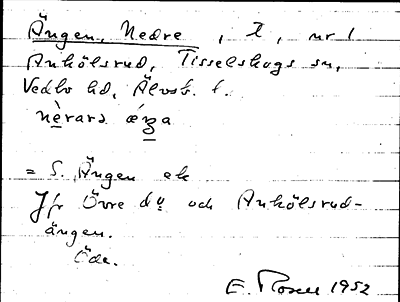 Ängen, Nedre, t, nr 1
Anhölsrud, Tisselskogs sn,
Vedbo hd, Älvsb. l.
nèrarə æŋa
= S. Ängen ek
Jfr Övre d:o och Anhölsrud-
ängen.
Öde.
E. Rosell 1952